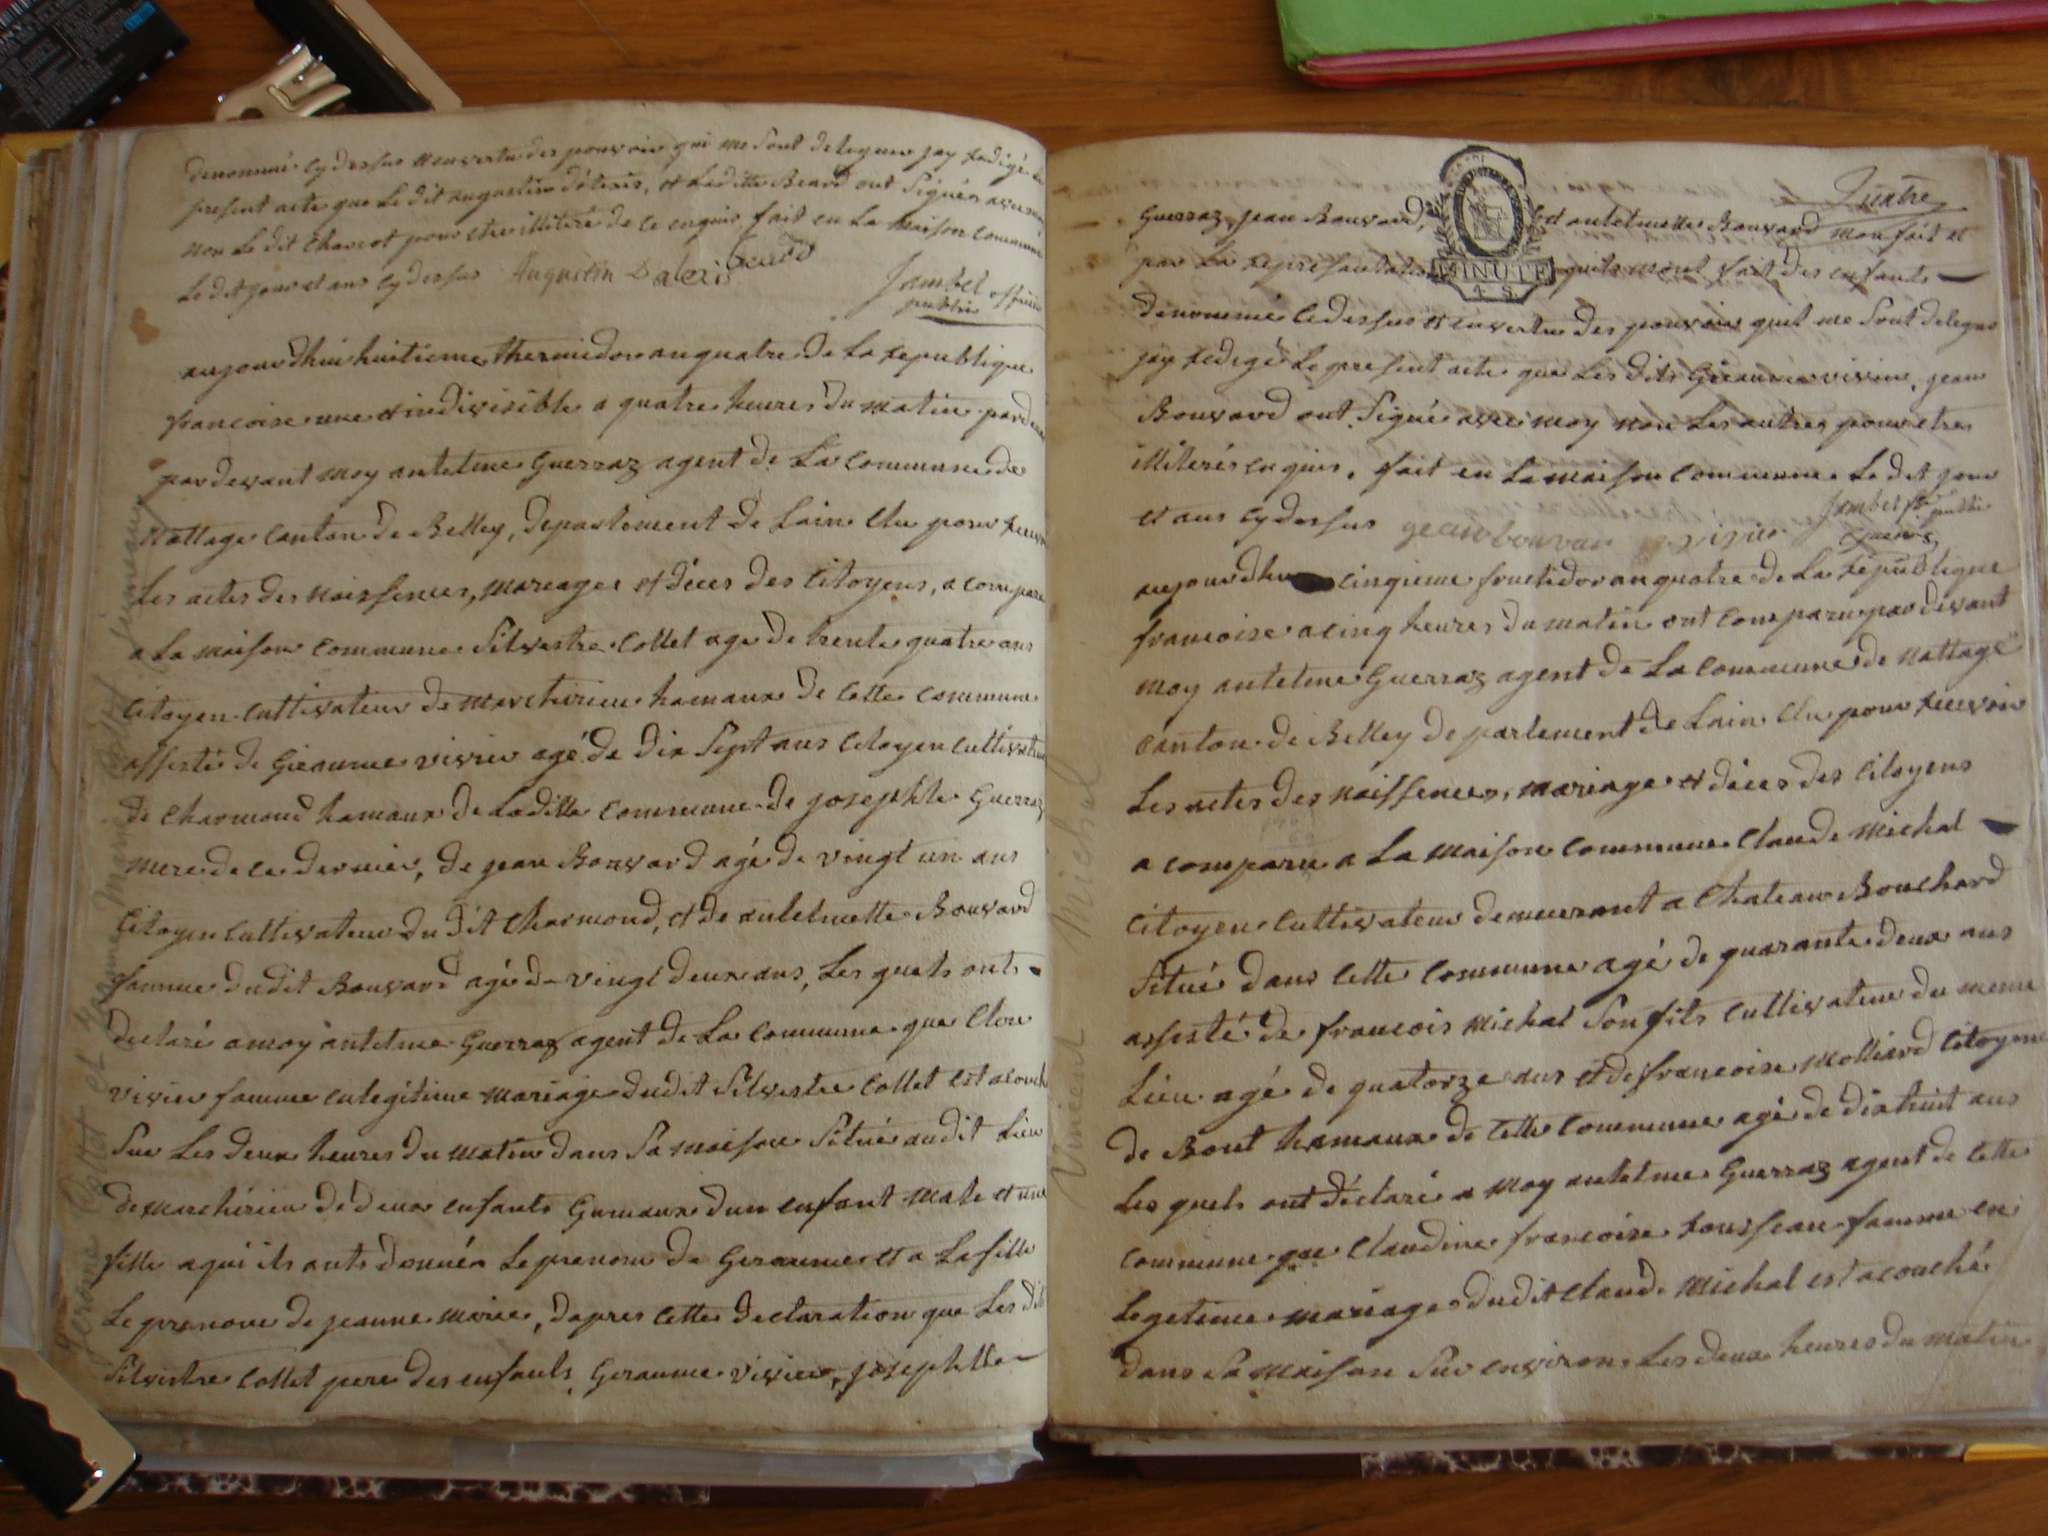 denommé cy dessus et en vertu des pouvoir qui me sont delegues jay redigé le
present acte que le dit augustin d'aleris, et laditte Beard ont signés avec moy
non le dit Chariot pour etre illiteré de ce enquis fait en la maison commune
le dit jour et ans cy dessus Augustin Daleris beard
Jambel officier
public
aujourdhui huitieme thermidor an quatre de la republique
francoise une et indivisible a quatre heures du matin pardevant
par devant moy antelme Guerraz agent de la commune de
Nattage canton de Belley, departement de Lain elu pour recevoir
les actes des naissences, mareages et déces des Citoyens, a comparu
a la maison commune Silvestre Collet age de trente quatre ans
Citoyen cultivateur de marchirieu hamaux de cette commune
assisté de Gieaume vivier agé de dix sept ans Citoyen cultivateur
de Charmond hamaux de laditte commune de josephte Guerraz
mere de ce dernier, de jean Bouvard agé de vingt un ans
Citoyen cultivateur du dit Charmond, et de antelmette Bouvard
famme dudit Bouvard agé de vingt deux ans, les quels onts
declaré a moy antelme Guerraz agent de la commune que Clau
vivier famme en legitime mariage dudit Silvestre Collet est acouché
sur les deux heures du matin dans sa maison situé audit lieu
de marchirieu de deux enfants Gumaux dun enfant male et une
fille a qui ils onts donnés le prenom de Geraume et a la fille
le prenom de jeanne marie, dapres cette declaration que les dit
Silvestre Collet pere des enfants, Geraume vivier, josephte
Jerome Collet et Jeanne Marie Collet jumeaux
Quatre
Guerraz, jean Bouvard, et antelmette Bouvard mon fait et
par la representation quils mont fait des enfants
MINUTE
4 S.
denommé cedessus et en vertu des pouvoir quil me sont delegué
jay redigé le present acte que les dits Gieaume vivier, jean
Bouvard ont signé avec moy non les autres pour etre
illiterés enquis, fait en la maison commune le dit jour
et ans cy dessus jean bouvar vivier Jambel officier public
aujourdhui cinqieme fructidor an quatre de la republique
francoise a cinq heures du matin ont comparu par devant
moy antelme Guerraz agent de la commune de Nattage
canton de Belley departement de Lain elu pour recevoir
les actes des naissences, mariage et déces des Citoyens
a comparu a la maison commune Claude Michal
Citoyen cultivateur demeurant a Chateau Bouchard
situé dans cette commune agé de quarante deux ans
assisté de francois Michal son fils cultivateur du meme
lieu agé de quatorze ans et de francoise Molliard Citoyene
de Bont hamaux de cette commune agé de dixhuit ans
les quels ont déclaré a moy antelme Guerraz agent de cette
commune que Claudine francoise rousseau famme en
legetime mariage dudit Claude Michal est acouché
dans sa maison sur environ les deux heures du matin
Vincent Michal